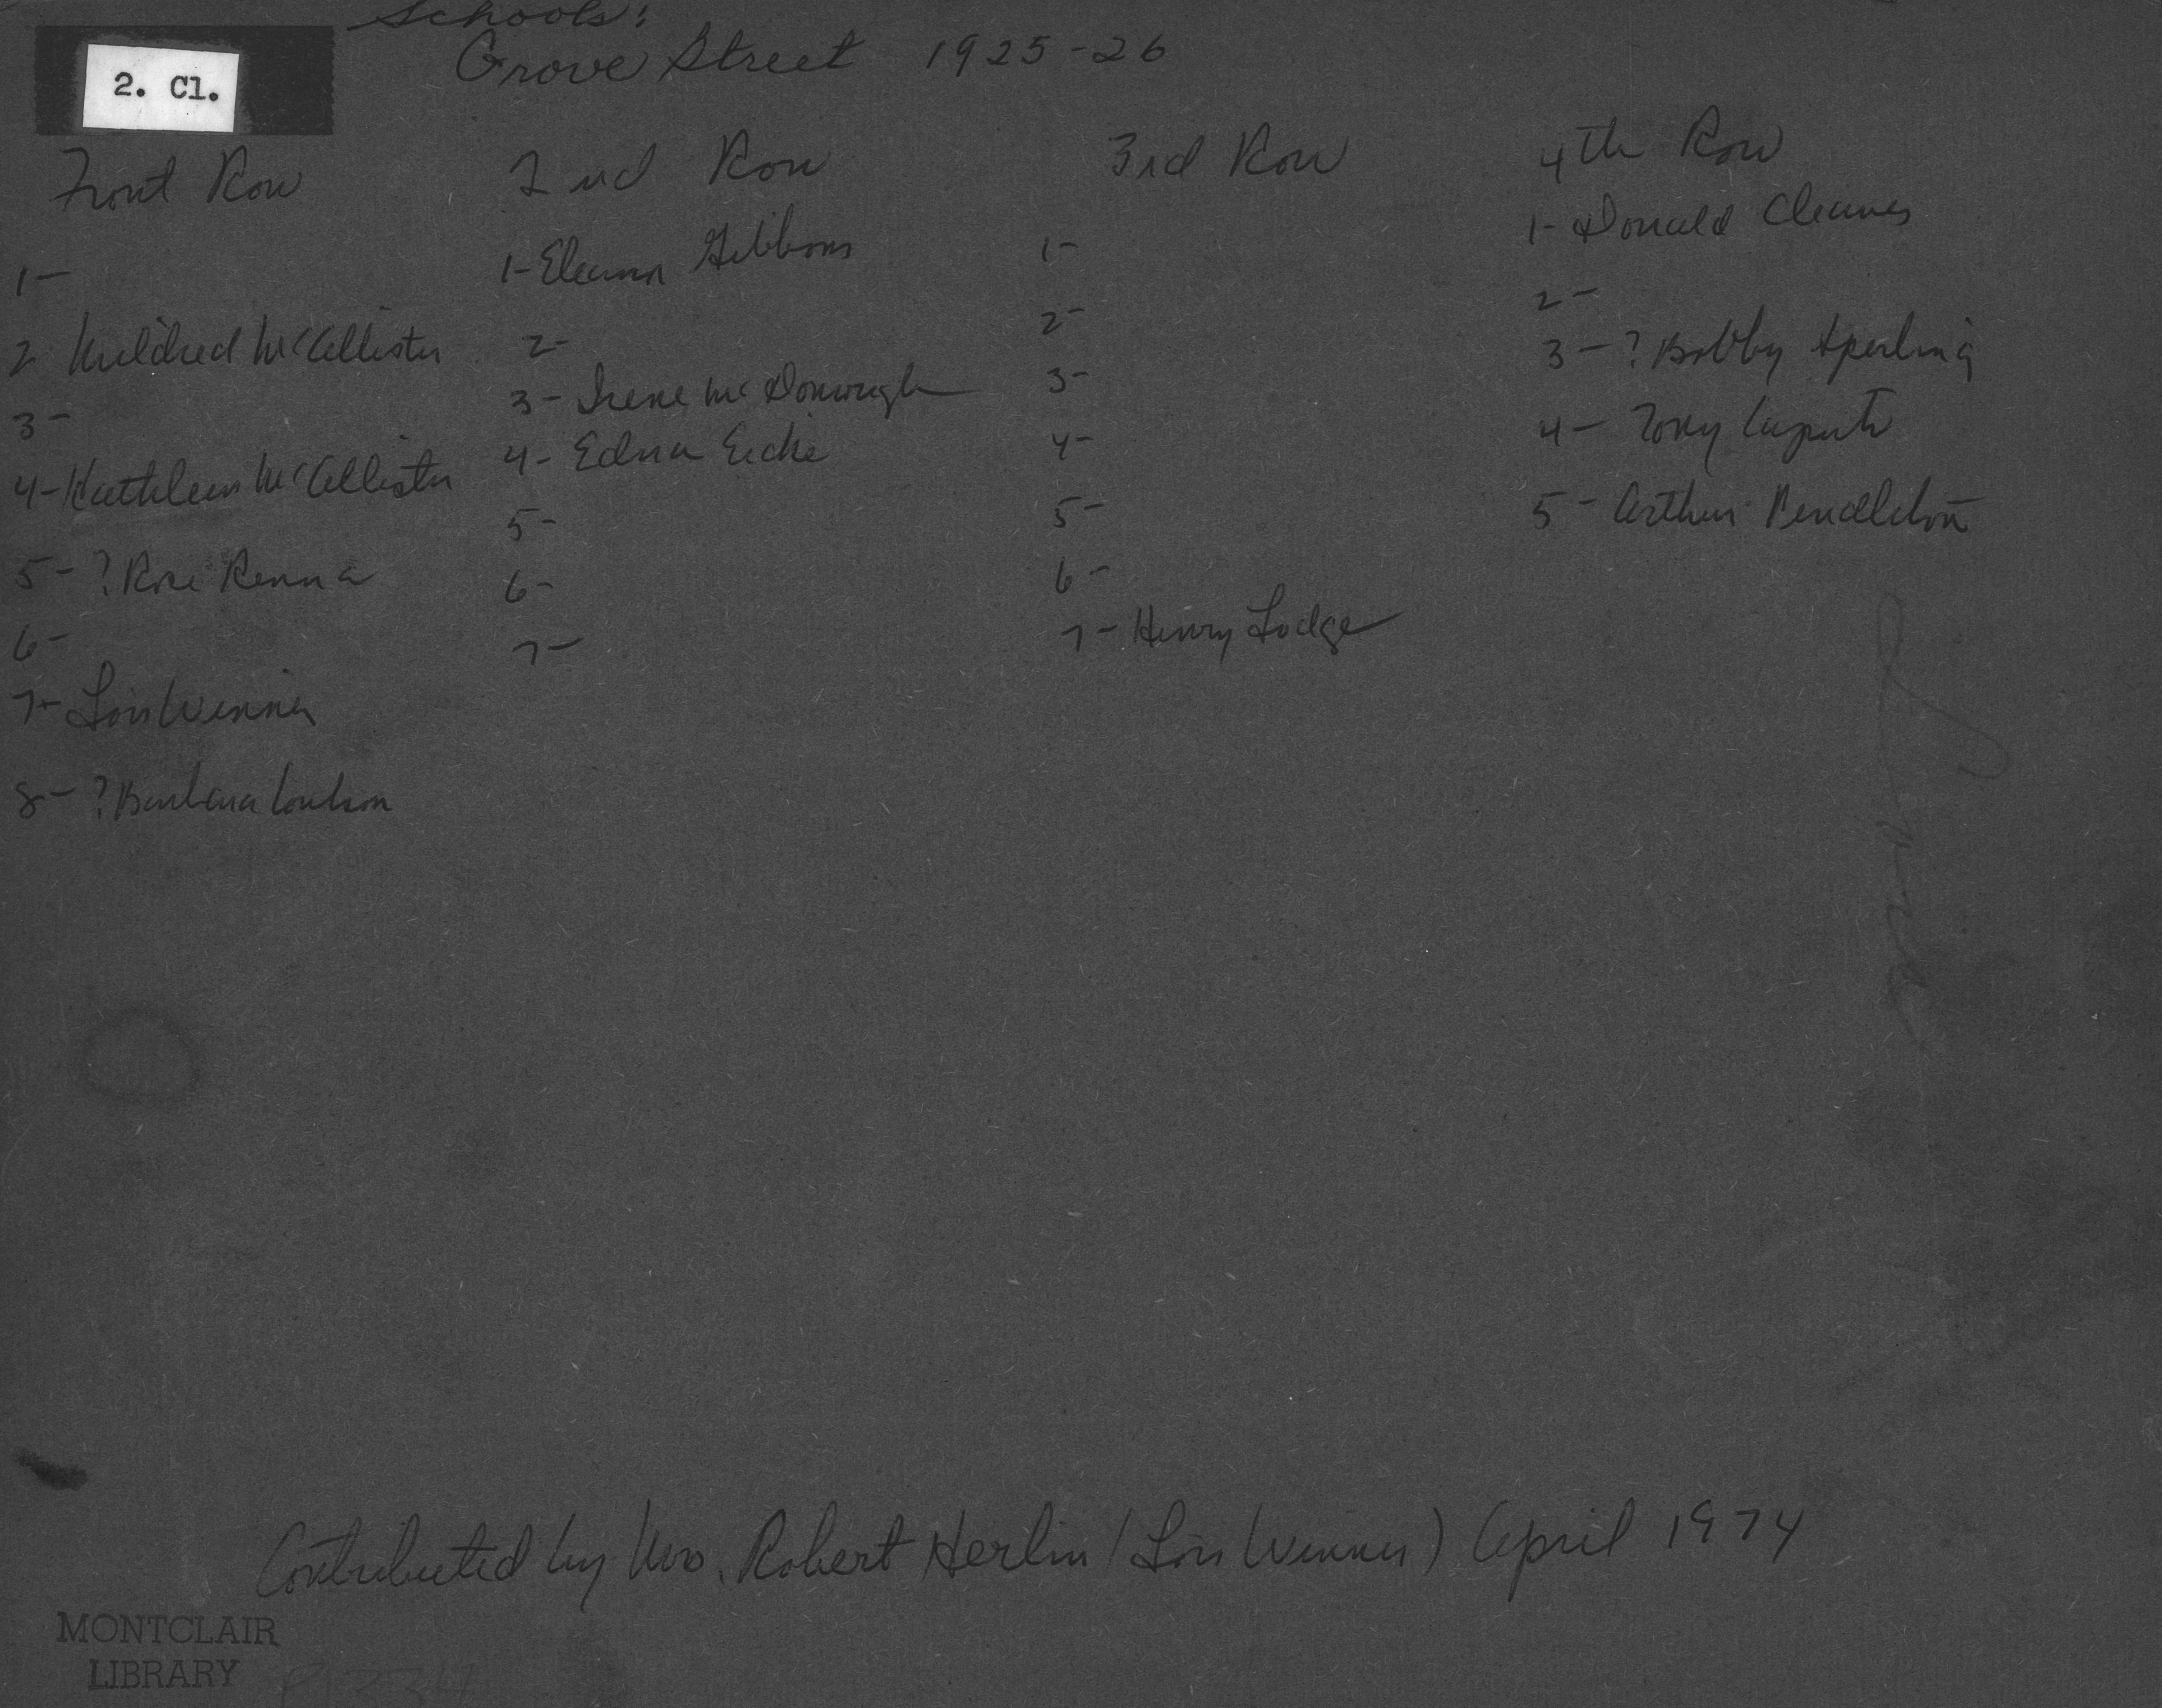 Schools:
Grove Street 1925-26
2. Cl.
Front Row
1-
2 Mildred McCallister
3-
4- Kathleen McCallister
5- ? Rose Renna
6-
7- Lois Wenner
8- ? Barbara
2nd Row
1- Eleanor Gibbons
2-
3- Irene McDonough
4- Edna Eicke
5-
6-
7-
3rd Row
1-
2-
3-
4-
5-
6-
7- Henry Lodge
4th Row
1- Donald Cleaves
2-
3- ? Bobby Sperling
4- Tony Caputo
5- Arthur Pendleton
Contributed by Mrs. Robert Herlin (Lois Wenner) April 1974
MONTCLAIR
LIBRARY